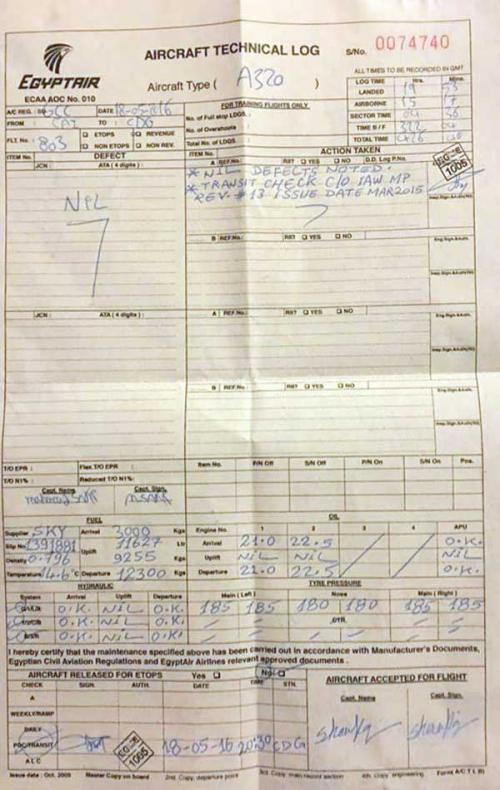 AIRCRAFT TECHNICAL LOG
S/No. 0074740
EGYPTAIR
ECAA AOC No. 010
Aircraft Type ( A320 )
ALL TIMES TO BE RECORDED IN GMT
LOG TIME Hrs. Mins.
LANDED 19 53
AIRBORNE 15 17
SECTOR TIME 04 36
TIME B / F
TOTAL TIME
A/C REG. : SU-GCC DATE : 18-05-2016
FROM : CAI TO : CDG
FLT No. : 803 ETOPS REVENUE
NON ETOPS NON REV.
FOR TRAINING FLIGHTS ONLY
No. of Full stop LDGS.
No. of Overshoots
Total No. of LDGS.
ITEM No. DEFECT
JCN : ATA ( 4 digits ) :
NIL
ITEM No. ACTION TAKEN
A REF.No.: RII? YES NO D.D. Log P.No.
* NIL DEFECTS NOTED.
* TRANSIT CHECK C/O IAW MP
REV. # 13 ISSUE DATE MAR2015
1005
B REF.No.: RII? YES NO
JCN : ATA ( 4 digits ) :
A REF.No.: RII? YES NO
B REF.No.: RII? YES NO
T/O EPR : Flex T/O EPR :
T/O N1% : Reduced T/O N1% :
Item No. P/N Off S/N Off P/N On S/N On Pos.
Capt. Name Capt. Sign.
FUEL
Supplier SKY Arrival 3000 Kgs
Slip No 1391881 Uplift 11627 Ltr
Density 0.796 9255 Kgs
Temperature 14.6 °C Departure 12300 Kgs
OIL
Engine No. 1 2 3 4 APU
Arrival 21.0 22.5 O.K.
Uplift NIL NIL NIL
Departure 21.0 22.5 O.K.
HYDRAULIC
System Arrival Uplift Departure
O.K. NIL O.K.
O.K. NIL O.K.
O.K. NIL O.K.
TYRE PRESSURE
Main ( Left ) Nose Main ( Right )
185 185 180 180 185 185
I hereby certify that the maintenance specified above has been carried out in accordance with Manufacturer's Documents,
Egyptian Civil Aviation Regulations and EgyptAir Airlines relevant approved documents .
AIRCRAFT RELEASED FOR ETOPS Yes No
CHECK SIGN. AUTH. DATE TIME STN.
A
WEEKLY/RAMP
DAILY
PDC/TRANSIT 1005 18-05-16 20:30 CDG
ALC
AIRCRAFT ACCEPTED FOR FLIGHT
Capt. Name Capt. Sign.
Issue date : Oct. 2009 Master Copy on board 2nd. Copy, departure point 3rd. Copy main record section 4th. Copy engineering Form: A/C T L (6)